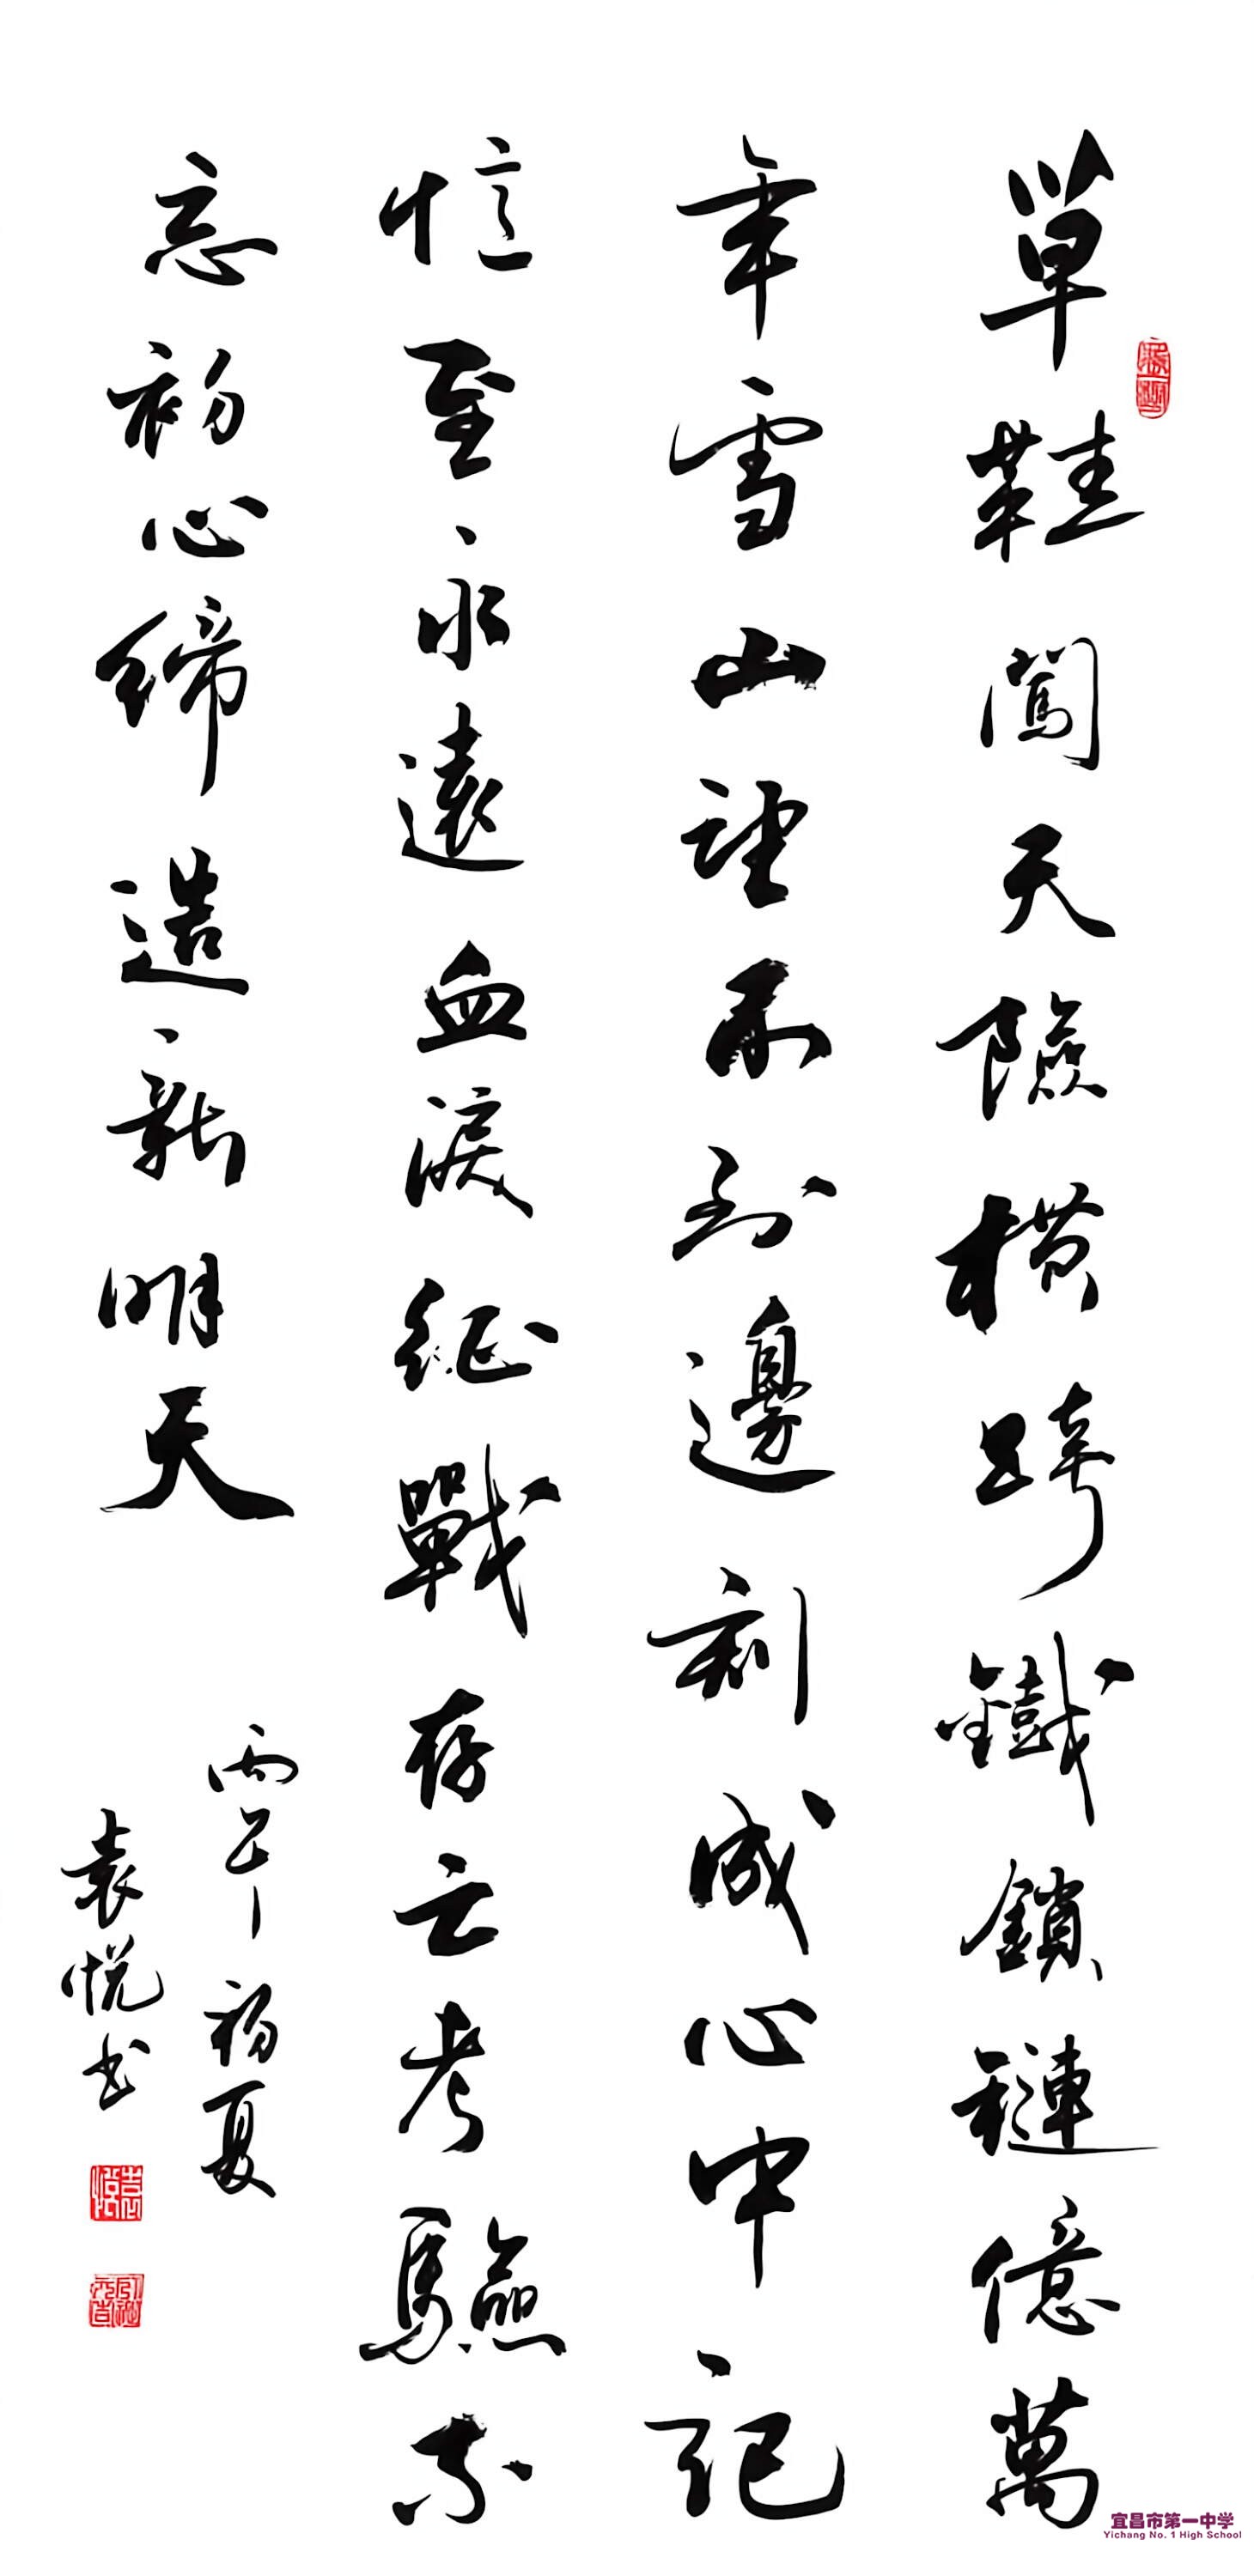 草鞋闖天險橫跨鐵鎖鏈億萬
年雪山望不到邊刻成心中記
憶至永遠血淚征戰存亡考驗不
忘初心締造新明天
丙午初夏
袁悦书
袁悦
宜昌市第一中学
Yichang No. 1 High School